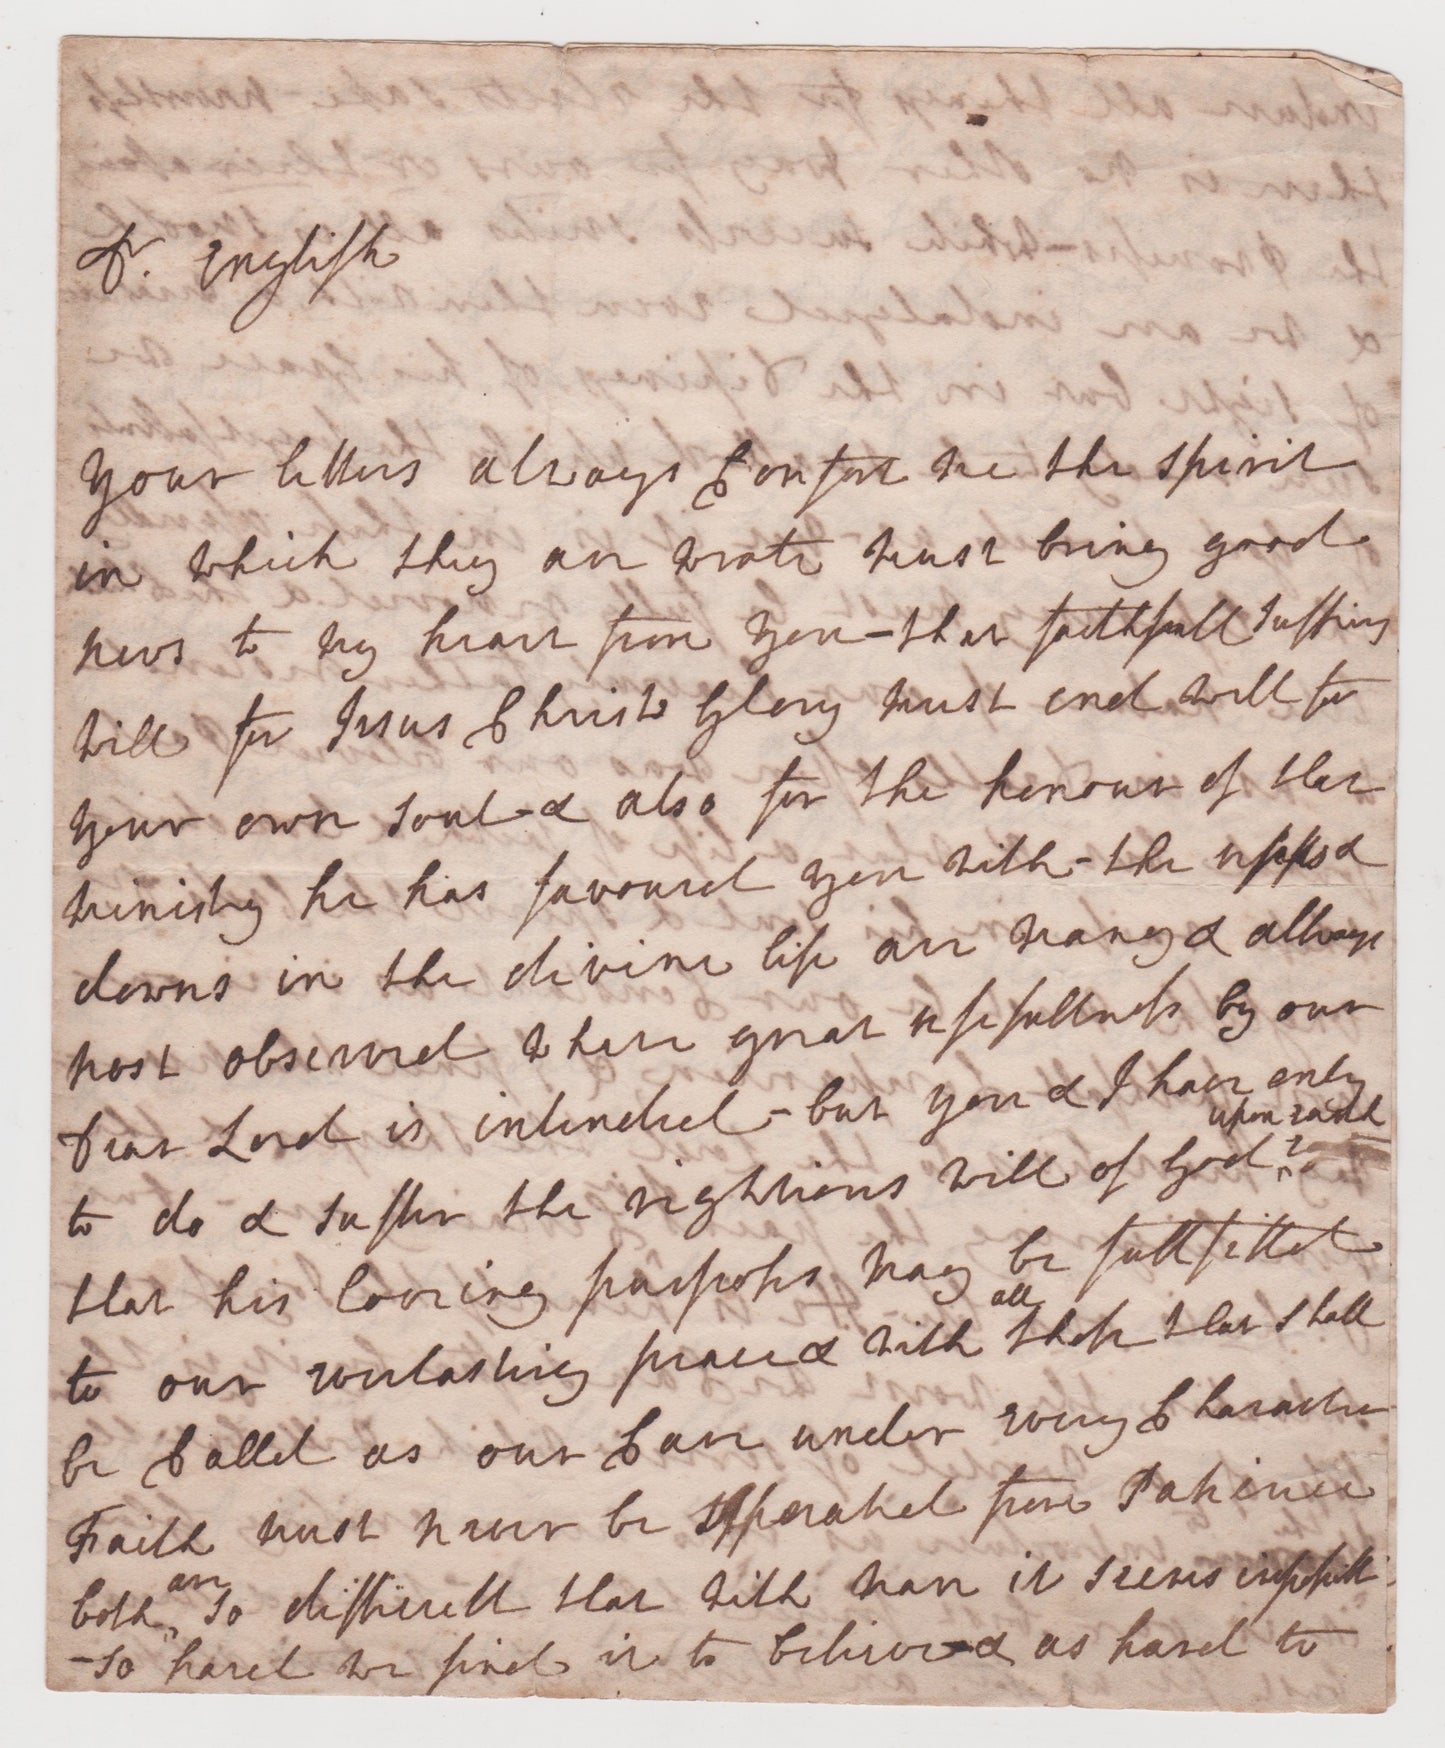 Dr. English
Your letters always Comfort me the spirit
in which they are wrote must bring good
news to my heart from you - that faithfull suffring
will for Jesus Christs Glory must end well for
your own soul - & also for the honour of that
ministry he has favoured you with - the upps &
downs in the divine life are many & allways
most observed where great usefullness by our
Dear Lord is intended - but you & I have only
upon earth
to do & suffer the righteous will of God
that his loveing purposes may be fullfilled
to our everlasting peace & with all those that shall
be Called as our Care under every Character
Faith must never be seperated from Patience
both are so difficult that with man it seems
- so hard we find it to believe - & as hard to